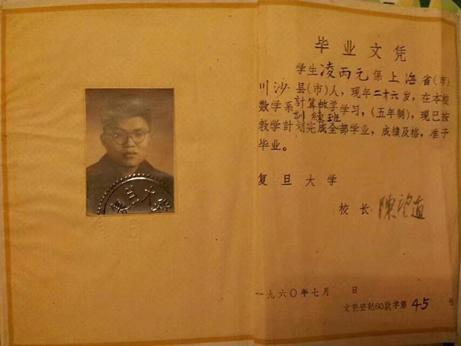 毕业文凭
学生凌丙元系上海省(市)
川沙县(市)人，现年二十六岁，在本校
数学系计算数学训练班学习，(五年制)，现已按
教学计划完成全部学业，成绩及格，准予
毕业。
复旦大学
校长 陳望道
一九六〇年七月 日
文凭登记60数字第45号
复旦大学